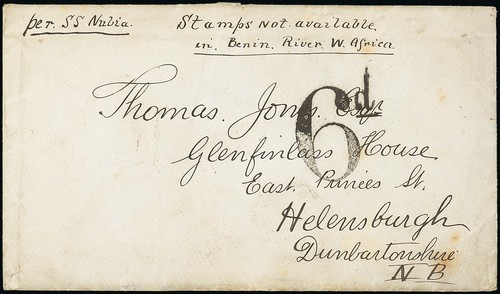 per. SS Nubia.
Stamps not available.
in. Benin. River. W. Africa.
6d
Thomas. Jones. Esqr
Glenfinlass House
East. Princes St.
Helensburgh
Dunbartonshire
N B